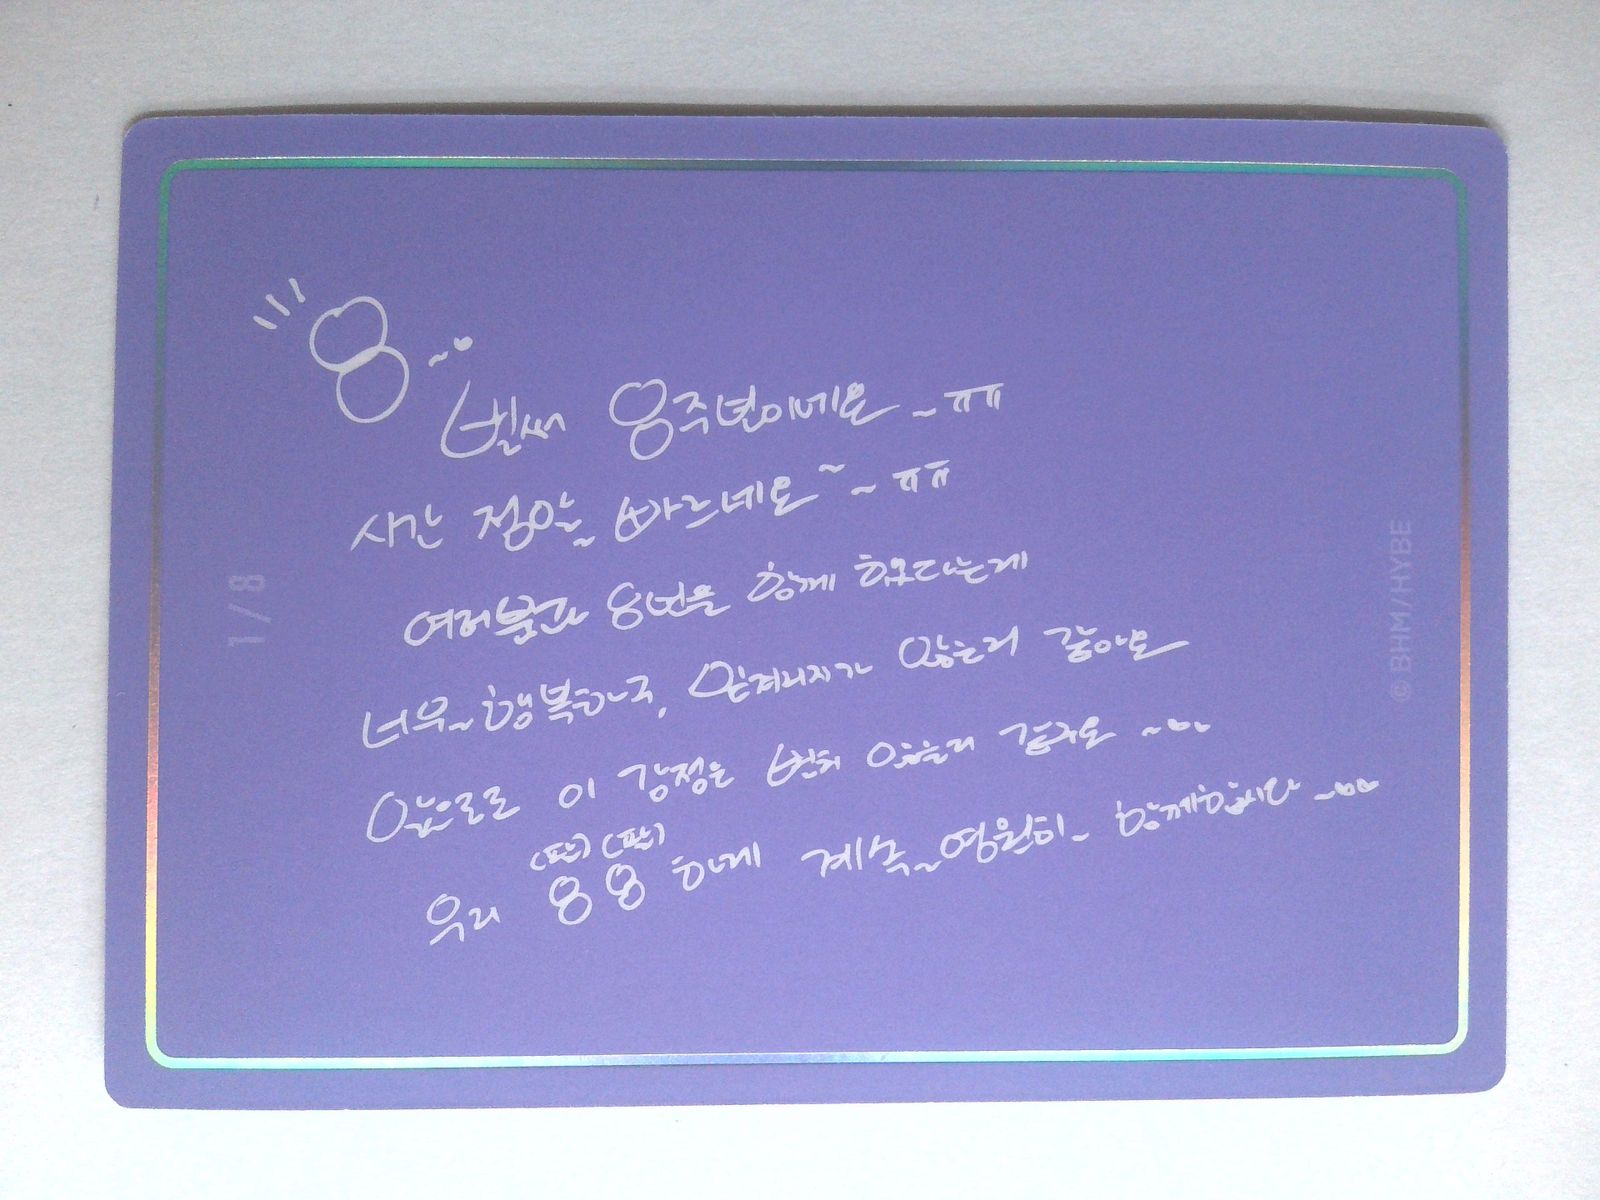 8~
벌써 8주년이네요~ㅠㅠ
시간 정말~ 빠르네요~~ㅠㅠ
여러분과 8년을 함께 했다는게
너무~행복하구, 믿겨지지가 않는거 같아요
앞으로도 이 감정은 변치 않는거 같구요~
(팔)(팔)
우리 88하게 계속~영원히~ 함께합시다~
1/8
© BHM/HYBE